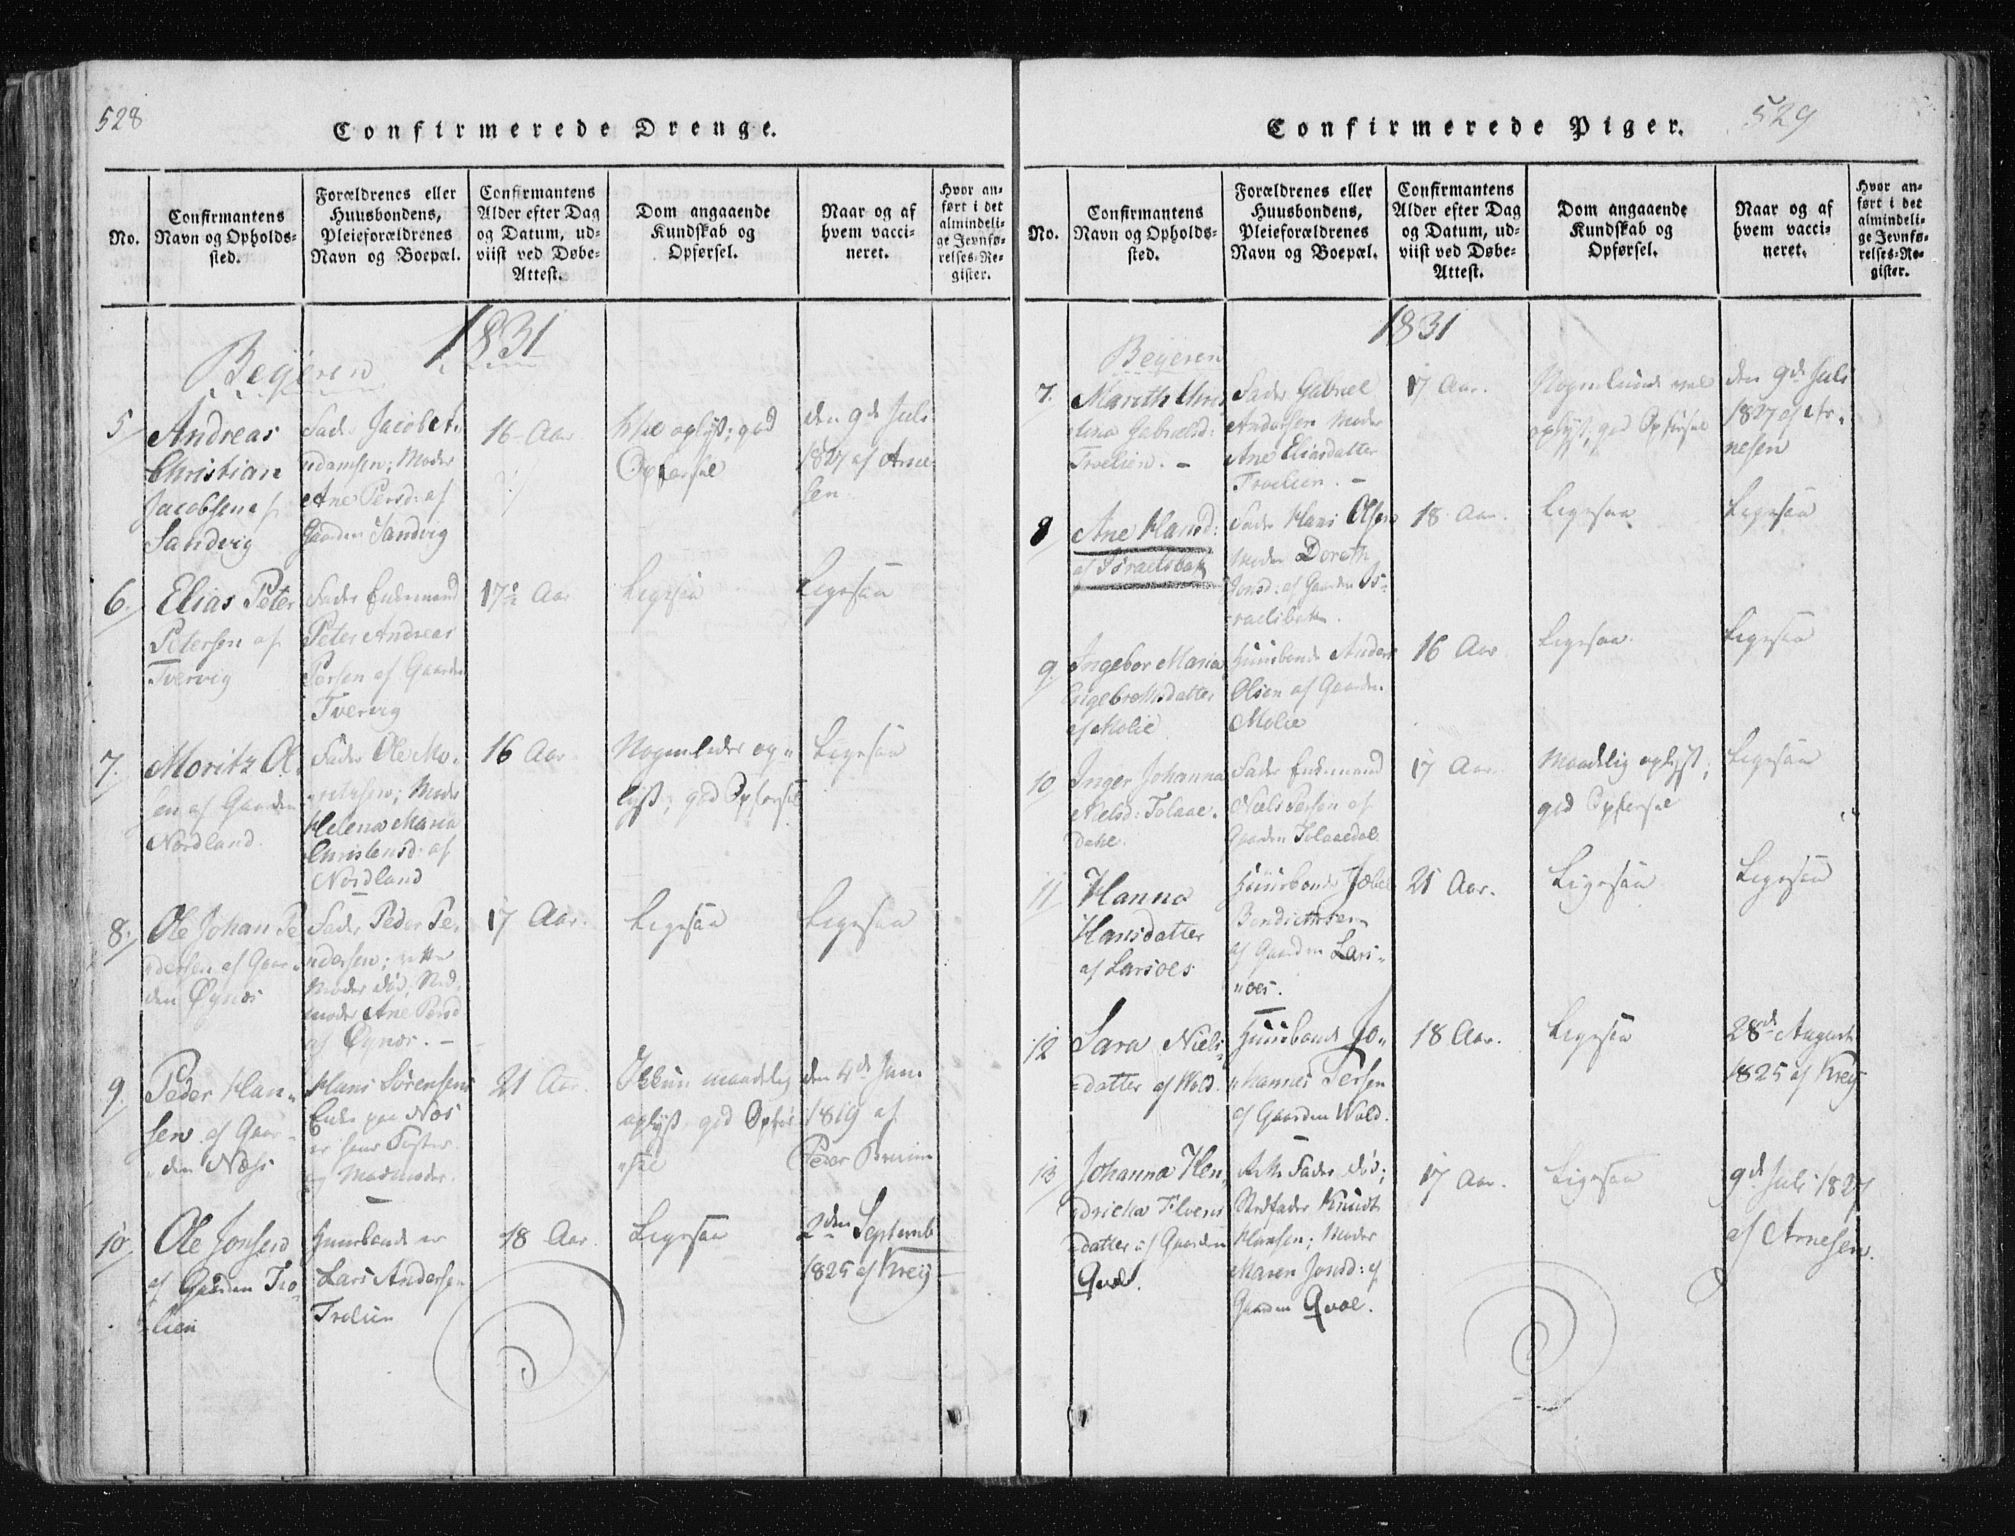 528
Confirmerede Drenge.
No.
Confirmantens
Navn og Opholds-
sted.
Forældrenes eller
Huusbondens,
Pleieforældrenes
Navn og Boepæl.
Confirmantens
Alder efter Dag
og Datum, ud-
viist ved Døbe-
Attest.
Dom angaaende
Kundskab og
Opførsel.
Naar og af
hvem vacci-
neret.
Hvor an-
ført i det
almindeli-
ge Jevnfø-
relses-Re-
gister.
1831
Beyeren
5
Andreas
Christian
Jacobsen af
Sandvig
Fader Jacob
Adamsen; Moder
Ane Persd: af
Gaarden Sandvig
16 Aar
oplyst; god
Opførsel
den 9de Juli
1827 af Arne-
sen
6.
Elias Peter
Petersen af
Tvervig
Fader Enkemand
Peter Andreas
Persen af Gaarden
Tvervig
17 Aar
Ligesaa
Ligesaa
7.
Moritz Ol-
sen af Gaarden
Nordland.
Fader Ole Mo-
ritzsen; Moder
Helena Maria
Christensd: af
Nordland
16 Aar
Nogenledes op-
lyst; god Opførsel
Ligesaa
8.
Ole Johan Pe
dersen af Gaar-
den Øynes
Fader Peder Pe-
dersen; rette
Moder død; Sted-
moder Ane Persd
af Øynes. -
17 Aar.
Ligesaa
Ligesaa
9
Peder Han-
sen af Gaar-
den Næss
Hans Sørensens
Enke paa Næs
er hans Foster
og Madmoder.
21 Aar.
maadelig
oplyst, god Opfør-
sel
den 4de Jun.
1819 af
Peder
10
Ole Jonsen
af Gaarden Tro-
lien
Huusbonde er
Lars Andersen
Trolien
18 Aar.
Ligesaa
2den Septemb
1825 af Kreij
Confirmerede Piger.
529
No.
Confirmantens
Navn og Opholds-
sted.
Forældrenes eller
Huusbondens,
Pleieforældrenes
Navn og Boepæl.
Confirmantens
Alder efter Dag
og Datum, ud-
viist ved Døbe-
Attest.
Dom angaaende
Kundskab og
Opførsel.
Naar og af
hvem vacci-
neret.
Hvor an-
ført i det
almindeli-
ge Jevnfø-
relses-Re-
gister.
1831
Beyeren
7.
Mareth Chris
tina Gabrielsd:
Troelien. -
Fader Gabriel
Andersen Moder
Ane Eliasdatter
Troelien. -
17 Aar.
Nogenlunde vel
oplyst; god Opførsel
den 9de Juli
1827 af Ar-
nesen
8
Ane Hansd:
af Israelsbak
Fader Hans Olsen
Moder Doroth
Jonsd. af Gaarden Is-
raelsbak.
18 Aar.
Ligesaa
Ligesaa
9.
Ingebor Maria
Engebretsdatter
af Molie
Huusbonde Anders
Olsen af Gaarden
Molie
16 Aar
Ligesaa.
Ligesaa
10
Inger Johanna
Nielsd: Tolaae-
dahl.
Fader Enkemand
Niels Persen af
Gaarden Tolaaedal
17 Aar.
Maadelig oplyst;
god Opførsel
Ligesaa
11
Hanna
Hansdatter
af Larsoes
Huusbonde
Bendichtsen
af Gaarden Lars-
oes.
21 Aar.
Ligesaa
Ligesaa
12
Sara Niels-
datter af Wold.
Huusbonde Jo-
hannes Persen
af Gaarden Wold.
18 Aar.
Ligesaa
28de August
1825 af Kreij
13
Johanna Hen-
dricka Elvens
datter af Gaarden
Qvæl.
Rette Fader død;
Stedfader Knudt
Hansen; Moder
Maren Jonsd: af
Gaarden Qvæl.
17 Aar.
Ligesaa
9de Juli 1827
af Arnesen.